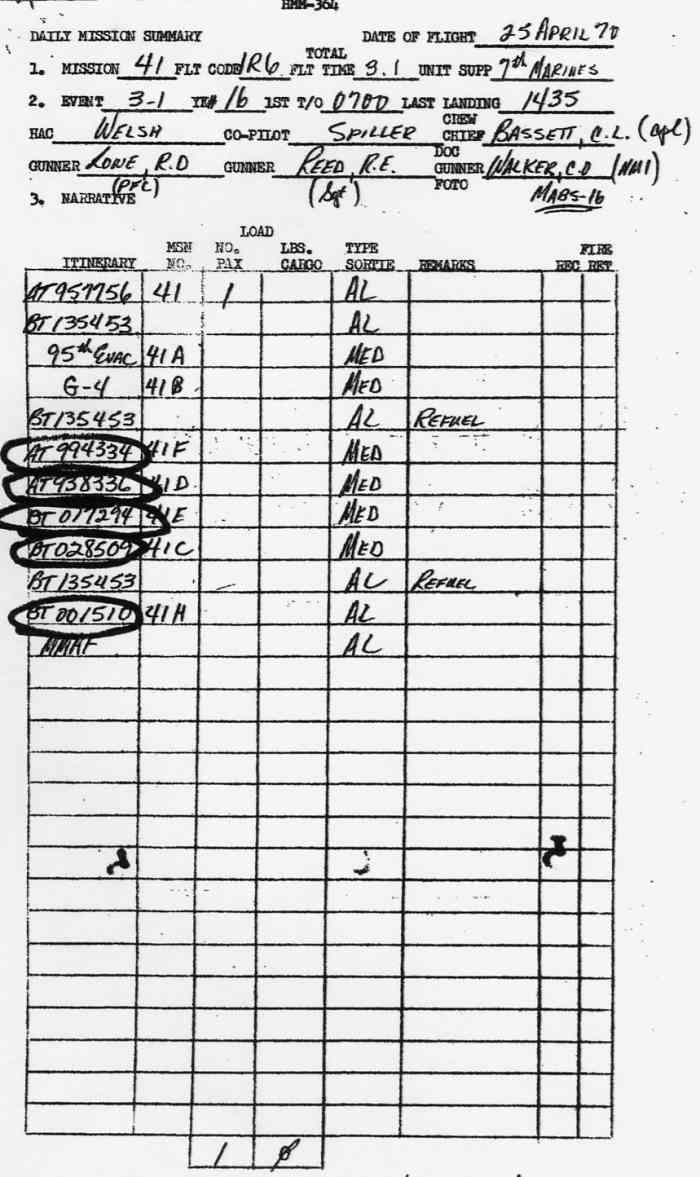 HMM-364
DAILY MISSION SUMMARY DATE OF FLIGHT 25 APRIL 70
1. MISSION 41 FLT CODE 1R6 TOTAL FLT TIME 3.1 UNIT SUPP 7th MARINES
2. EVENT 3-1 YK# 16 1ST T/O 0700 LAST LANDING 1435
HAC WELSH CO-PILOT SPILLER CREW CHIEF BASSETT, C.L. (cpl)
GUNNER R.D (PFC) GUNNER REED, R.E. (Sgt) DOC GUNNER WALKER, C.D (NMI)
FOTO MABS-16
3. NARRATIVE
LOAD
MSN NO. LBS. TYPE FIRE
ITINERARY NO. PAX CARGO SORTIE REMARKS REC RET
AT957756 41 1 AL
BT135453 AL
95th EVAC 41A MED
G-4 41B MED
BT135453 AL REFUEL
AT994334 41F MED
AT938336 41D MED
BT017294 41E MED
BT028509 41C MED
BT135453 AL REFUEL
BT001510 41H AL
MMAF AL
1 ø